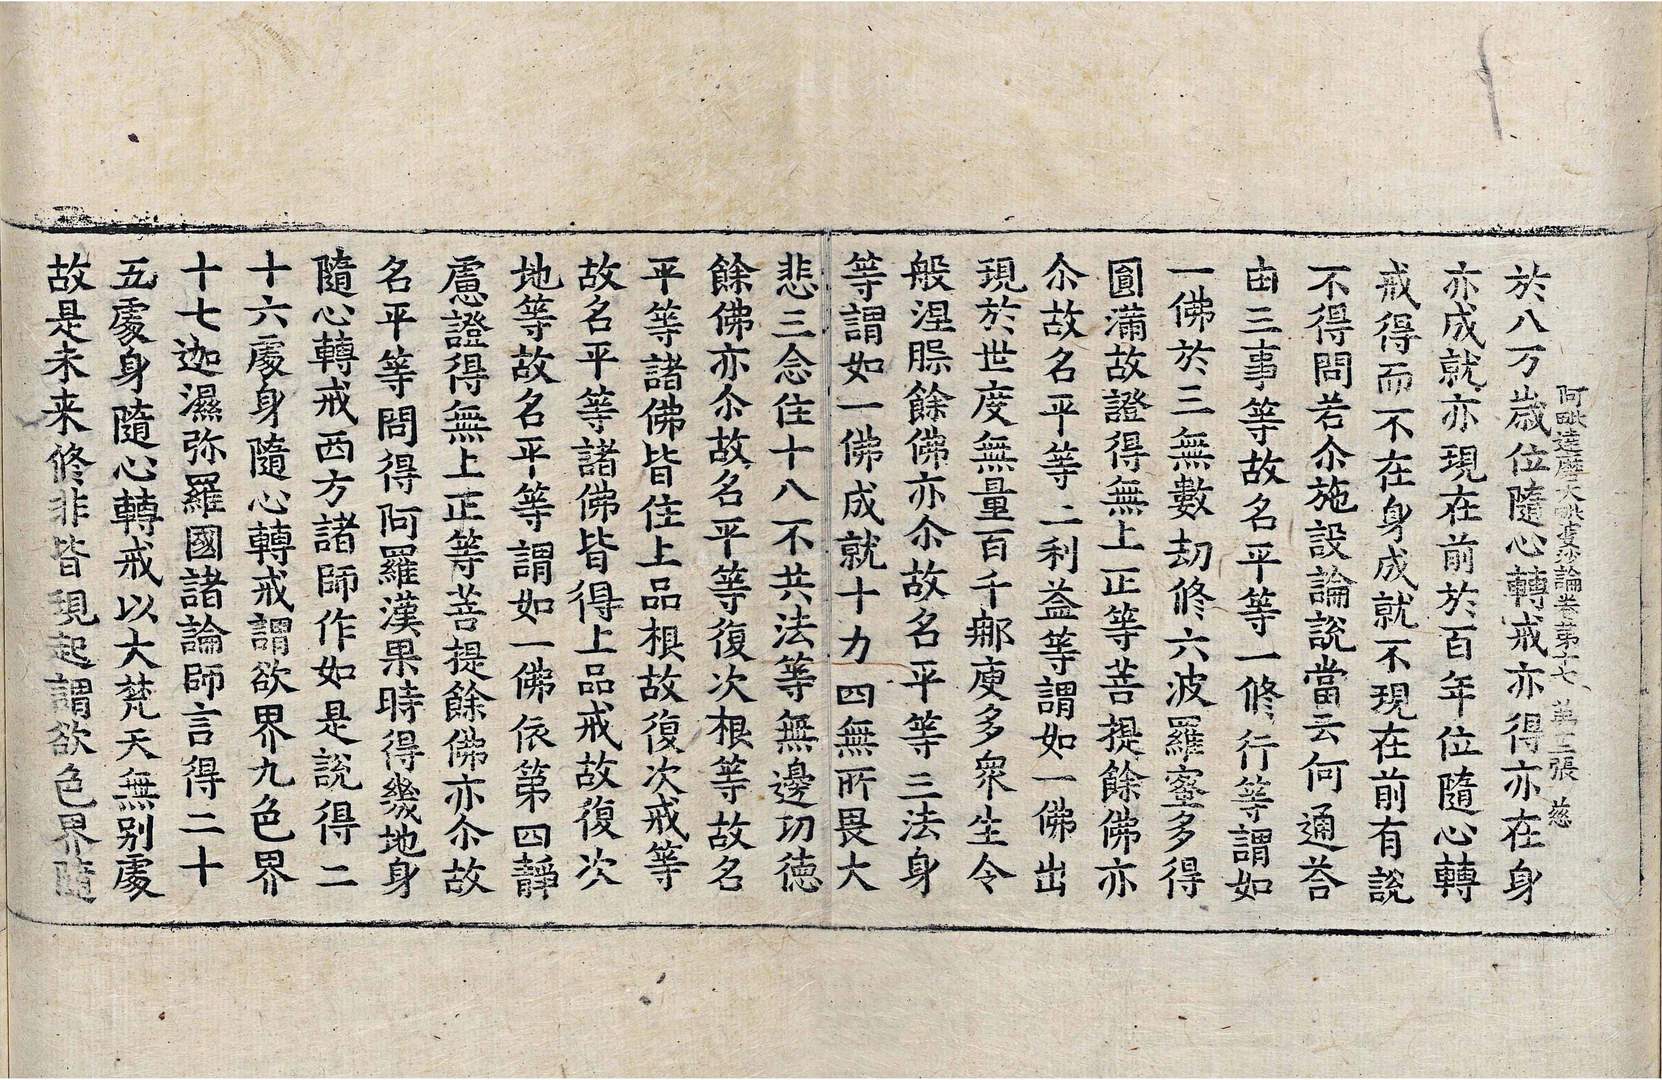 阿毗達磨大毗婆沙論卷第十七　第十二張　慈
於八万歳位隨心轉戒亦得亦在身
亦成就亦現在前於百年位隨心轉
戒得而不在身成就不現在前有說
不得問若尒施設論說當云何通荅
由三事等故名平等一修行等謂如
一佛於三無數劫修六波羅蜜多得
圓滿故證得無上正等菩提餘佛亦
尒故名平等二利益等謂如一佛出
現於世度無量百千那庾多衆生令
般涅槃餘佛亦尒故名平等三法身
等謂如一佛成就十力四無所畏大
悲三念住十八不共法等無邊功德
餘佛亦尒故名平等復次根等故名
平等諸佛皆住上品根故復次戒等
故名平等諸佛皆得上品戒故復次
地等故名平等謂如一佛依第四靜
慮證得無上正等菩提餘佛亦尒故
名平等問得阿羅漢果時得幾地身
隨心轉戒西方諸師作如是說得二
十六處身隨心轉戒謂欲界九色界
十七迦濕弥羅國諸論師言得二十
五處身隨心轉戒以大梵天無别處
故是未来修非皆現起謂欲色界隨